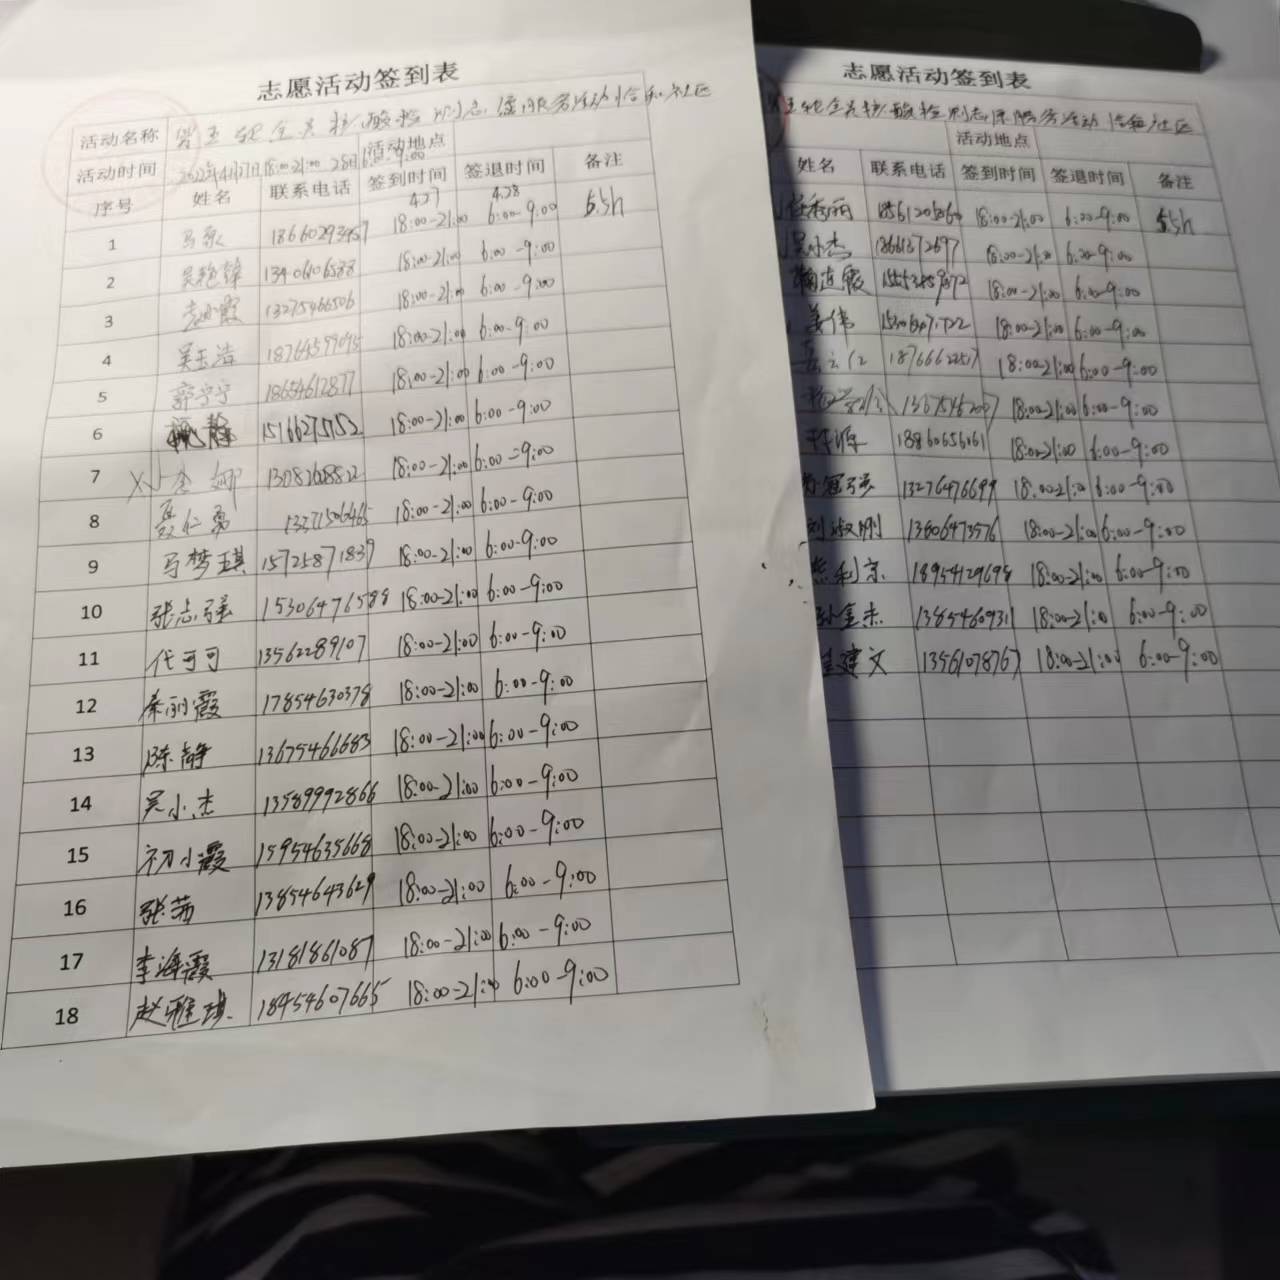 志愿活动签到表
活动名称 第五轮全员核酸检测志愿服务活动 怡和社区
活动时间 2022年4月27日18:00-21:00 28日6:00-9:00 活动地点
序号 姓名 联系电话 签到时间 4.27 签退时间 4.28 备注
1 18660293457 18:00-21:00 6:00-9:00 5.5h
2 吴艳锋 13406106588 18:00-21:00 6:00-9:00
3 13275466506 18:00-21:00 6:00-9:00
4 吴玉浩 18:00-21:00 6:00-9:00
5 郭宁宁 18654612877 18:00-21:00 6:00-9:00
6 静 15166275152 18:00-21:00 6:00-9:00
7 李娜 18:00-21:00 6:00-9:00
8 聂仁勇 13371506465 18:00-21:00 6:00-9:00
9 马梦琪 15725871839 18:00-21:00 6:00-9:00
10 张志强 15306476588 18:00-21:00 6:00-9:00
11 代可可 13562289107 18:00-21:00 6:00-9:00
12 秦丽霞 17854630378 18:00-21:00 6:00-9:00
13 陈静 13675466683 18:00-21:00 6:00-9:00
14 吴小杰 13589992866 18:00-21:00 6:00-9:00
15 初小霞 15954635668 18:00-21:00 6:00-9:00
16 张茜 13854643629 18:00-21:00 6:00-9:00
17 李海霞 13181861087 18:00-21:00 6:00-9:00
18 赵雅琪 18454607665 18:00-21:00 6:00-9:00
志愿活动签到表
五轮全员核酸检测志愿服务活动 怡和社区
活动地点
姓名 联系电话 签到时间 签退时间 备注
任秀丽 18:00-21:00 6:00-9:00 5.5h
吴小杰 18661372697 18:00-21:00 6:00-9:00
连霞 18:00-21:00 6:00-9:00
姜伟 18:00-21:00 6:00-9:00
18766622517 18:00-21:00 6:00-9:00
18:00-21:00 6:00-9:00
18860656161 18:00-21:00 6:00-9:00
冠强 13276476699 18:00-21:00 6:00-9:00
刘淑刚 13606473576 18:00-21:00 6:00-9:00
利京 18954129698 18:00-21:00 6:00-9:00
孙金 13854609311 18:00-21:00 6:00-9:00
建文 13561078767 18:00-21:00 6:00-9:00